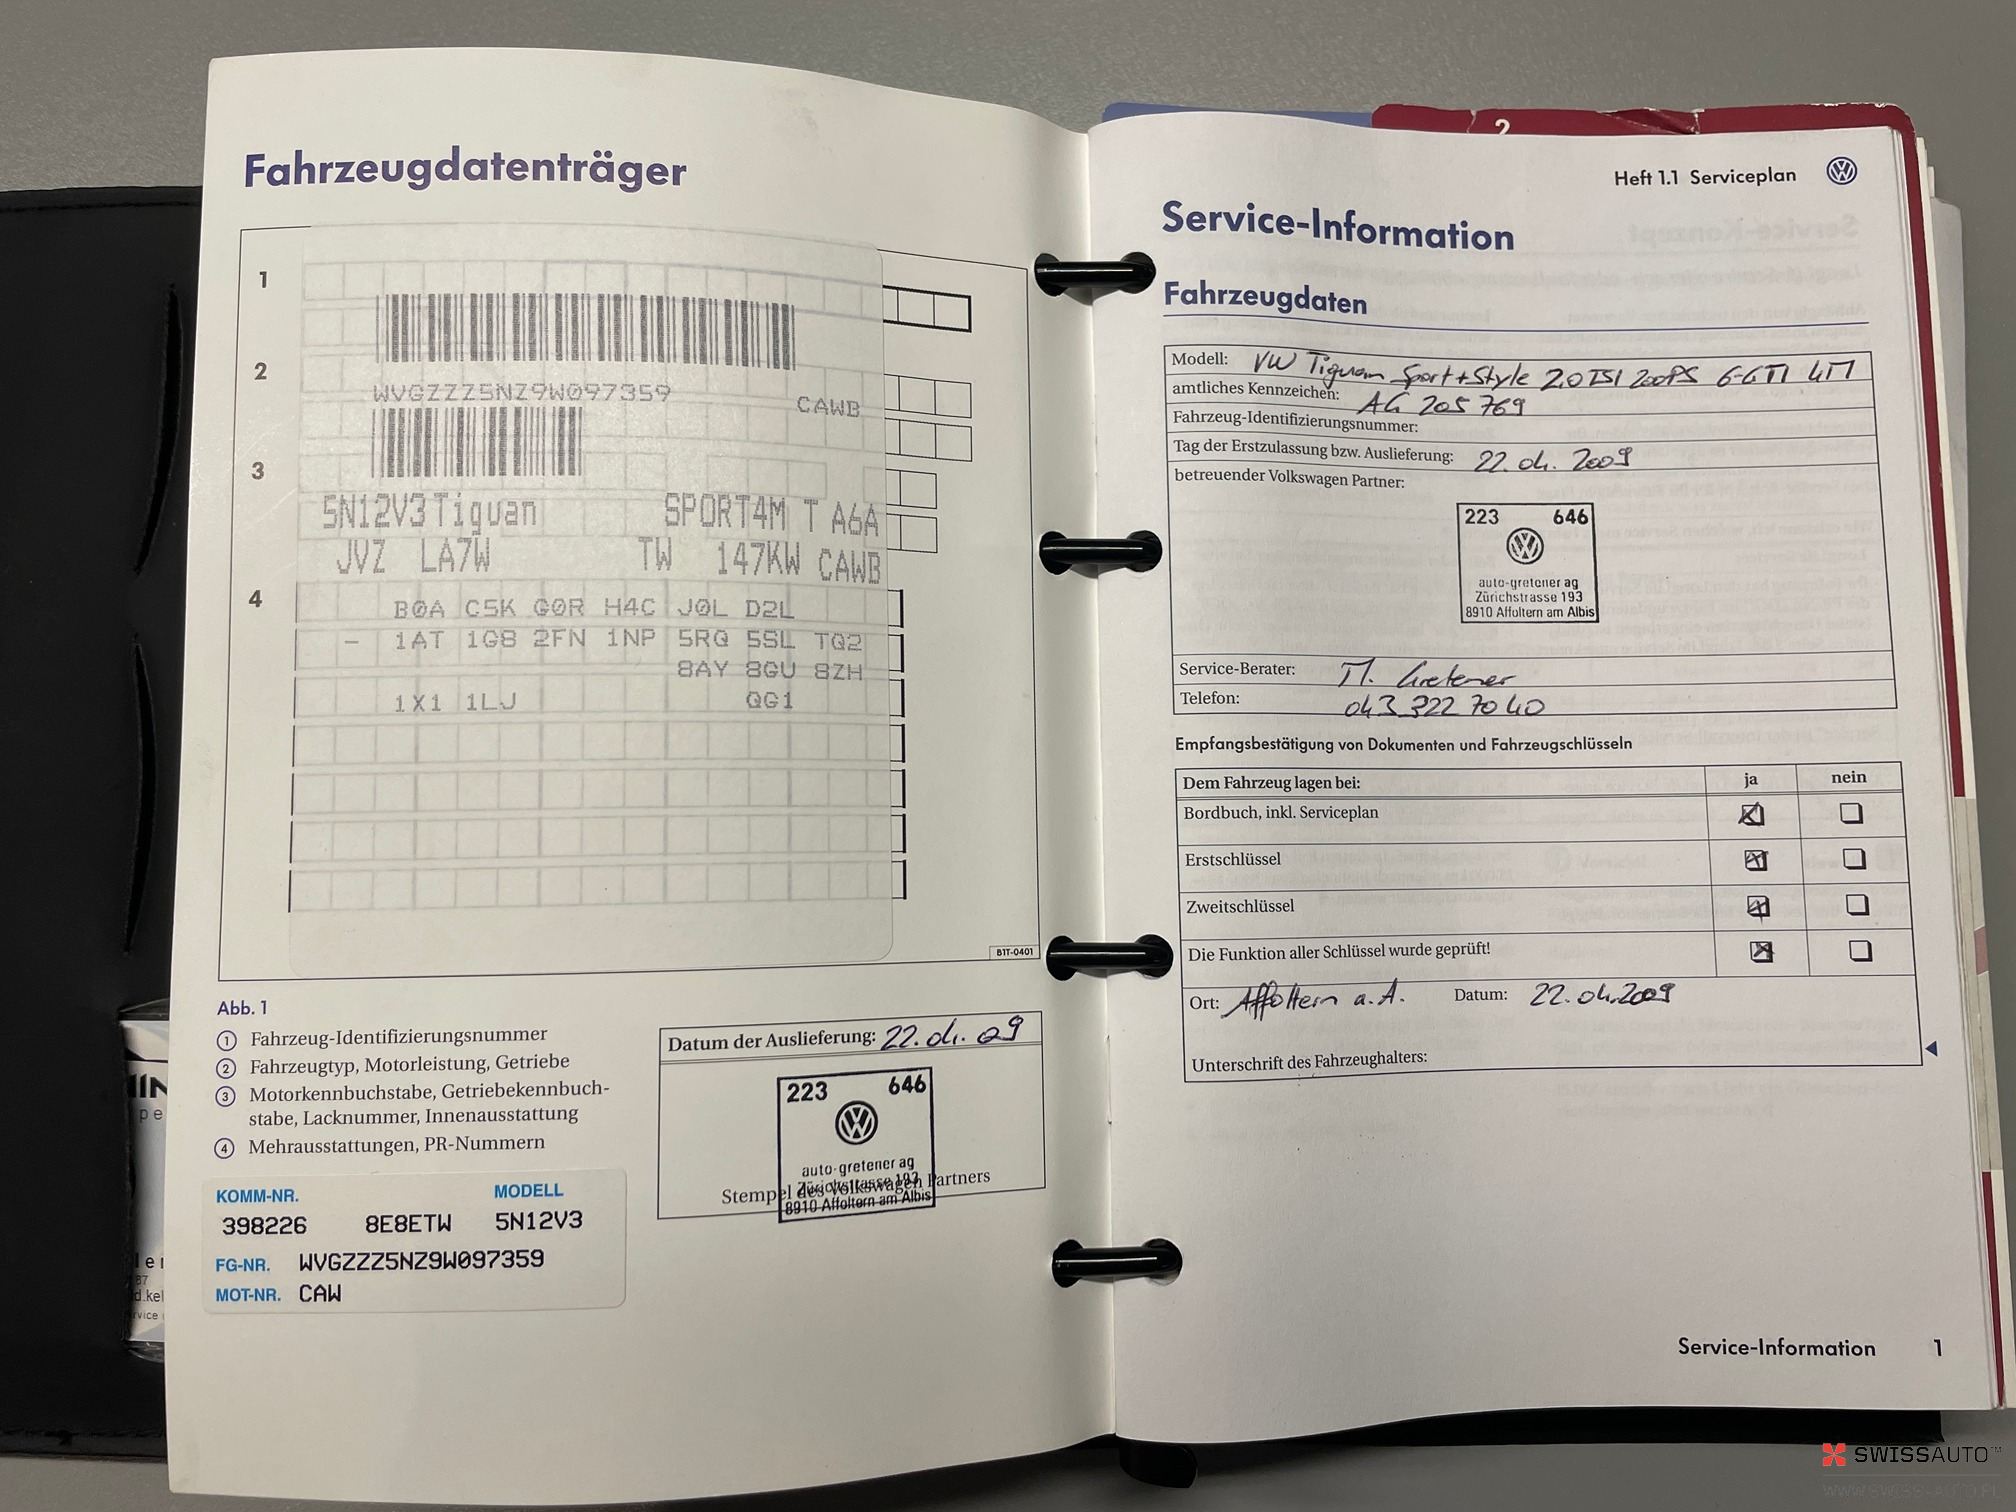 Fahrzeugdatenträger
1
2
WVGZZZ5NZ9W097359
CAWB
3
5N12V3 Tiguan SPORT4M T A6A
JVZ LA7W TW 147KW CAWB
4
B0A C5K G0R H4C J0L D2L
- 1AT 1G8 2FN 1NP 5RQ 5SL TQ2
8AY 8GU 8ZH
1X1 1LJ QG1
B1T-0401
Abb. 1
1 Fahrzeug-Identifizierungsnummer
2 Fahrzeugtyp, Motorleistung, Getriebe
3 Motorkennbuchstabe, Getriebekennbuch-
stabe, Lacknummer, Innenausstattung
4 Mehrausstattungen, PR-Nummern
Datum der Auslieferung: 22.04.09
223 646
auto-gretener ag
Zürichstrasse 193
8910 Affoltern am Albis
Stempel des Volkswagen Partners
KOMM-NR. MODELL
398226 8E8ETW 5N12V3
FG-NR. WVGZZZ5NZ9W097359
MOT-NR. CAW
2
Heft 1.1 Serviceplan
Service-Information
Fahrzeugdaten
Modell: VW Tiguan Sport+Style 2.0 TSI 200PS 6-GTI 4M
amtliches Kennzeichen: AG 205 769
Fahrzeug-Identifizierungsnummer:
Tag der Erstzulassung bzw. Auslieferung: 22.04.2009
betreuender Volkswagen Partner:
223 646
auto-gretener ag
Zürichstrasse 193
8910 Affoltern am Albis
Service-Berater: M. Gretener
Telefon: 043 322 70 40
Empfangsbestätigung von Dokumenten und Fahrzeugschlüsseln
Dem Fahrzeug lagen bei: ja nein
Bordbuch, inkl. Serviceplan
Erstschlüssel
Zweitschlüssel
Die Funktion aller Schlüssel wurde geprüft!
Ort: Affoltern a. A. Datum: 22.04.2009
Unterschrift des Fahrzeughalters:
Service-Information 1
SWISSAUTO™